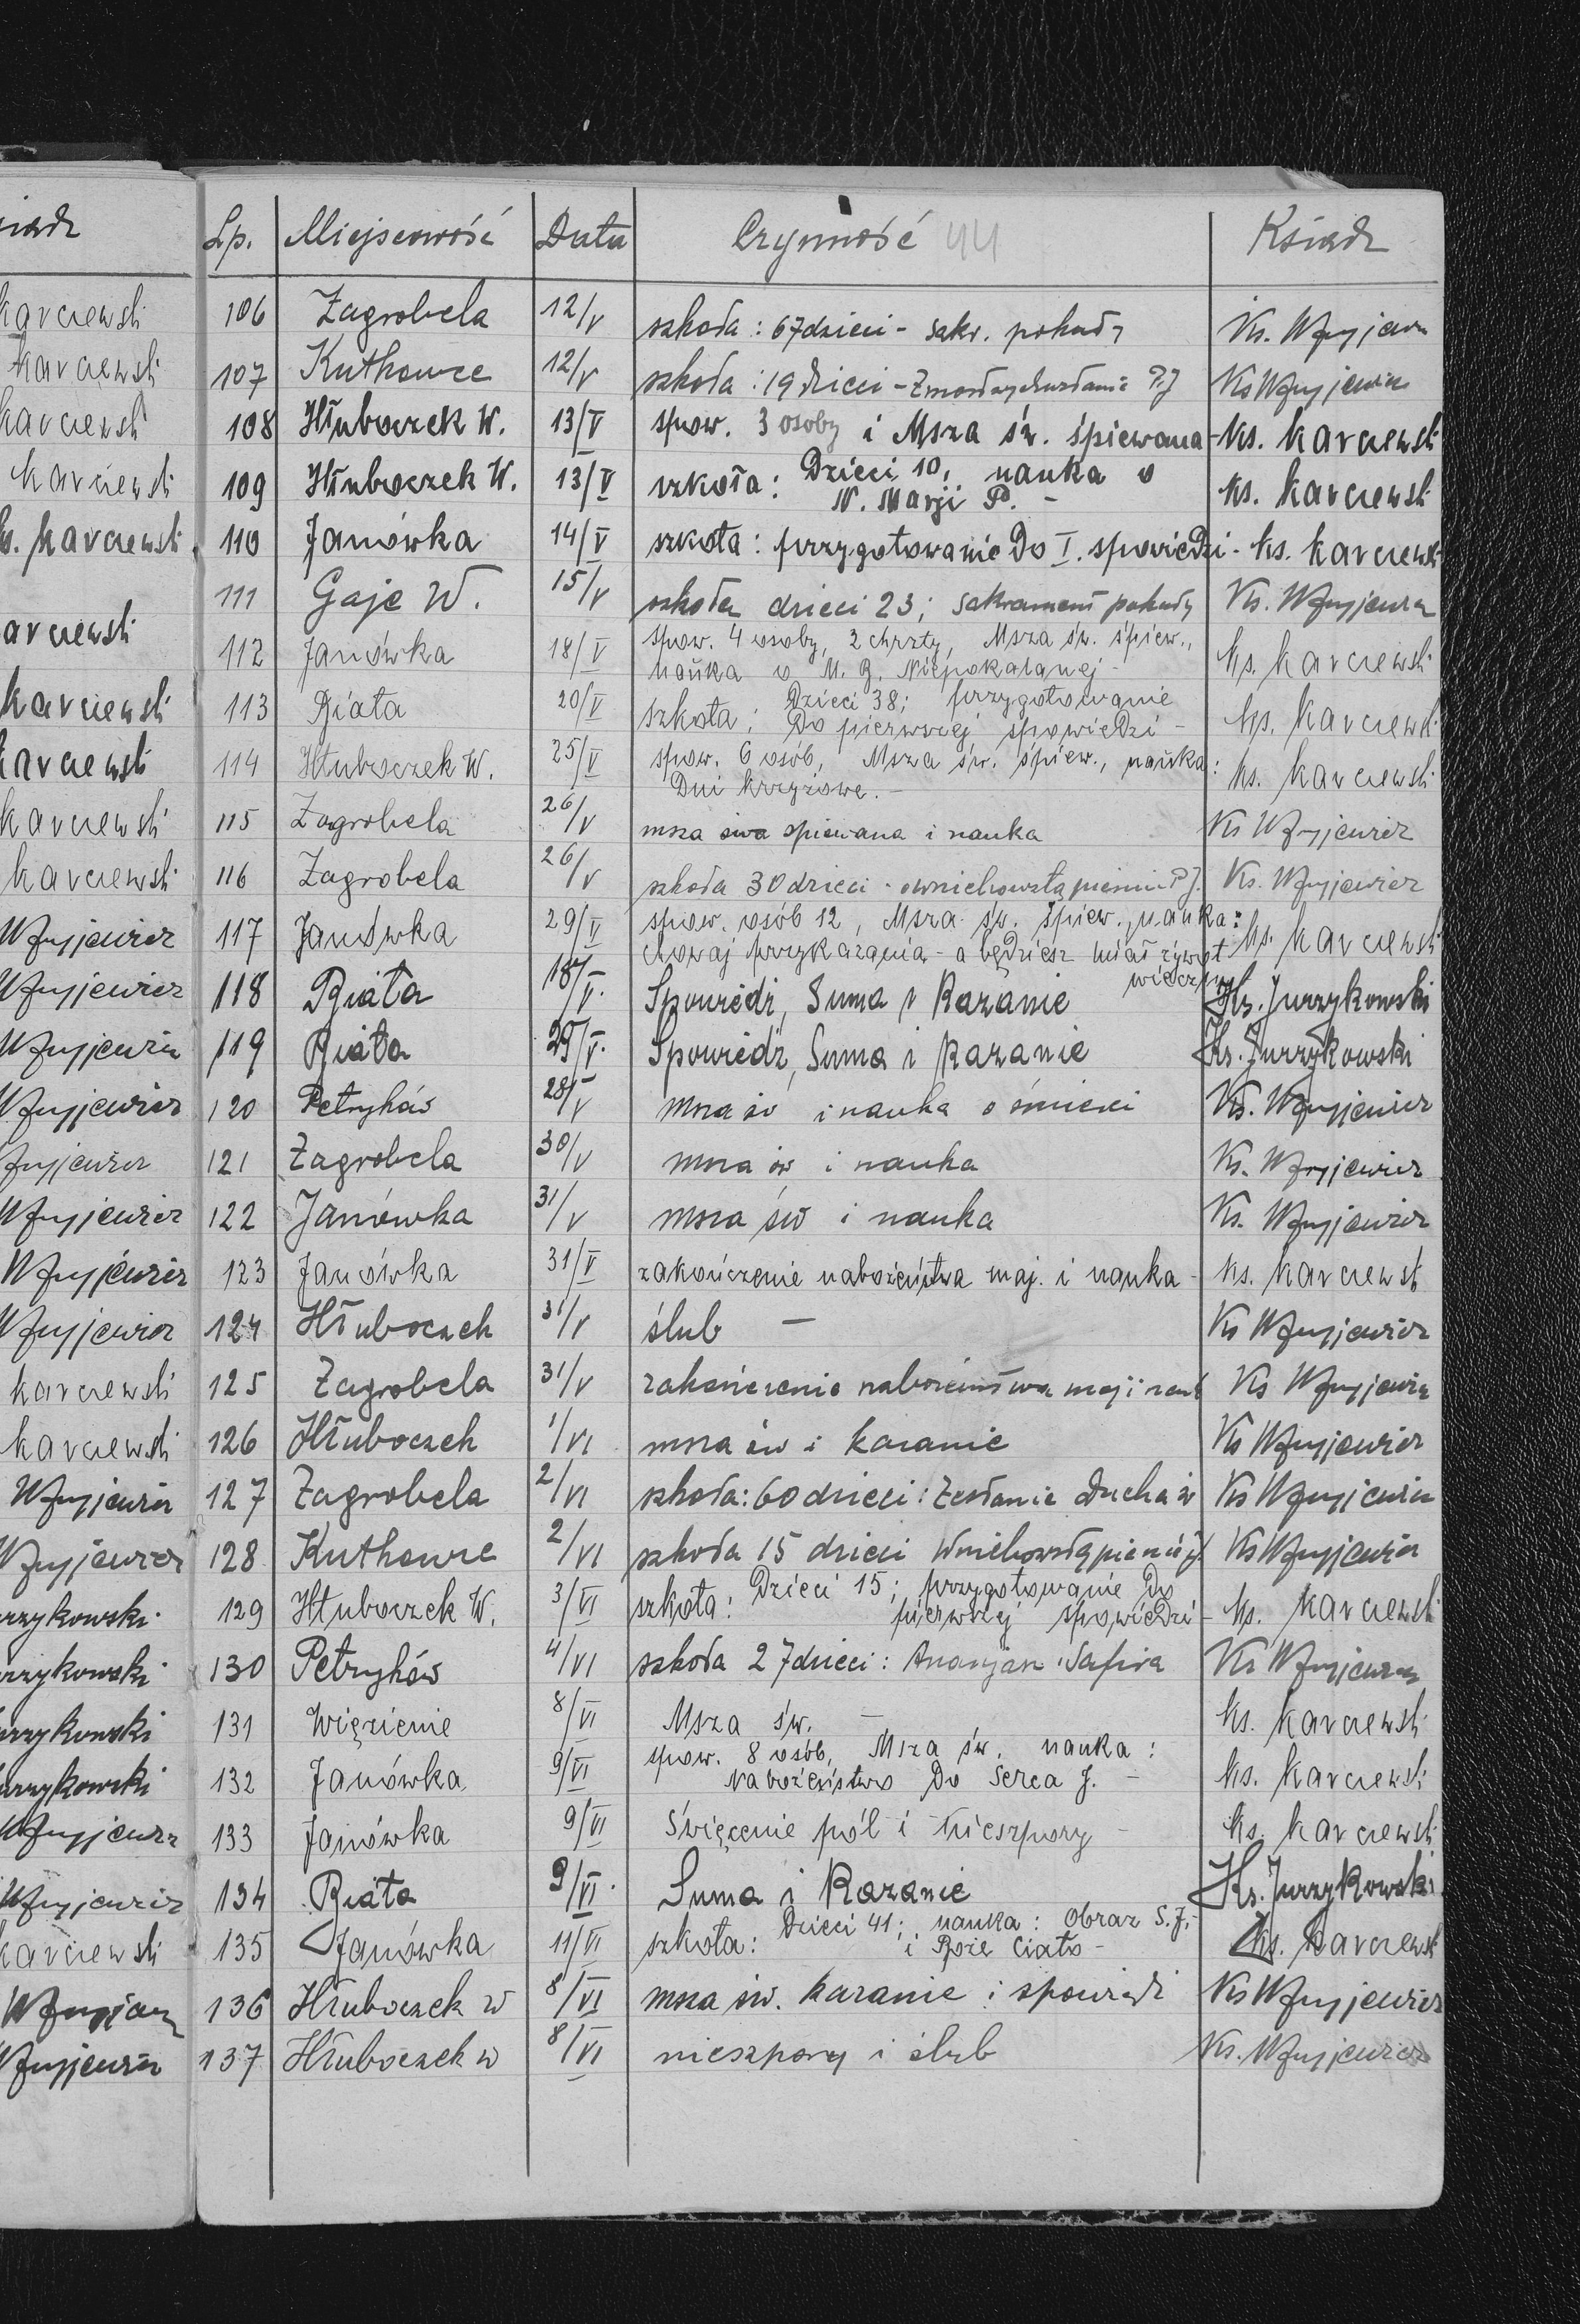 Lp. Miejscowość Data Czynność 44 Ksiądz
106 Zagrobela 12/V szkoła: 67 dzieci - sakr. pokuty Ks. Wzyjewicz
107 Kutkowce 12/V szkoła: 19 dzieci - P.J Ks Wzyjewicz
108 Hłuboczek W. 13/V spow. 3 osoby i Msza św. śpiewana - ks. Karczewski
109 Hłuboczek W. 13/V szkoła: Dzieci 10, nauka o
N. Marji P. - ks. Karczewski
110 Janówka 14/V szkoła: przygotowanie Do I. spowiedzi - ks. Karczewski
111 Gaje W. 15/V szkoła dzieci 23; sakrament pokuty Ks. Wzyjewicz
112 Janówka 18/V spow. 4 osoby, 2 chrzty, Msza św. śpiew.,
nauka o M. B. Niepokalanej - ks. Karczewski
113 Biała 20/V szkoła: Dzieci 38; przygotowanie
Do pierwszej spowiedzi - ks. Karczewski
114 Hłuboczek W. 25/V spow. 6 osób, Msza św. śpiew., nauka:
Dni krzyżowe. - ks. Karczewski
115 Zagrobela 26/V msza śwa śpiewana i nauka Ks Wzyjewicz
116 Zagrobela 26/V szkoła 30 dzieci - o wniebowstąpieniu P.J. Ks. Wzyjewicz
117 Janówka 29/V spow. osób 12, Msza św. śpiew., nauka:
chowaj przykazania - a będziesz miał żywot
wieczny ks. Karczewski
118 Biała 18/V. Spowiedź, Suma i Kazanie Ks. Jurzykowski
119 Biała 29/V. Spowiedź, Suma i Kazanie Ks. Jurzykowski
120 Petryków 28/V msza św i nauka o śmierci Ks. Wzyjewicz
121 Zagrobela 30/V msza św i nauka Ks. Wzyjewicz
122 Janówka 31/V msza św i nauka Ks. Wzyjewicz
123 Janówka 31/V zakończenie nabożeństwa maj. i nauka - ks. Karczewski
124 Hłuboczek 31/V ślub - Ks Wzyjewicz
125 Zagrobela 31/V zakończenie nabożeństwa maj i nauk Ks Wzyjewicz
126 Hłuboczek 1/VI msza św i kazanie Ks Wzyjewicz
127 Zagrobela 2/VI szkoła: 60 dzieci: Zesłanie Ducha św Ks Wzyjewicz
128 Kutkowce 2/VI szkoła 15 dzieci Wniebowstąpienie Ks Wzyjewicz
129 Hłuboczek W. 3/VI szkoła: Dzieci 15; przygotowanie Do
pierwszej spowiedzi - ks. Karczewski
130 Petryków 4/VI szkoła 27 dzieci: Ananjasz i Safira Ks Wzyjewicz
131 Więzienie 8/VI Msza św. - ks. Karczewski
132 Janówka 9/VI spow. 8 osób, Msza św. nauka:
Nabożeństwo Do Serca J. - ks. Karczewski
133 Janówka 9/VI Święcenie pól i nieszpory - ks. Karczewski
134 Biała 9/VI. Suma i Kazanie Ks. Jurzykowski
135 Janówka 11/VI szkoła: Dzieci 41; nauka: Obraz S.J.
i Boże Ciało - ks. Karczewski
136 Hłuboczek W 8/VI msza św. kazanie i spowiedź Ks Wzyjewicz
137 Hłuboczek W 8/VI nieszpory i ślub Ks. Wzyjewicz